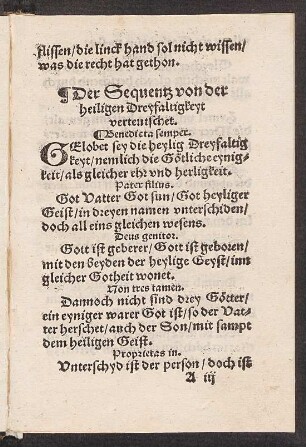 flissen/die linck hand sol nicht wissen/
was die recht hat gethon.
¶Der Sequentz von der
heiligen Dreyfaltigkeyt
verteutschet.
¶Benedicta semper.
GElobet sey die heylig Dreyfaltig
keyt/nemlich die Götlich eynig-
keit/als gleicher ehr vnd herligkeit.
Pater filius.
Got Vatter Got sun/Got heyliger
Geist/in dreyen namen vnterschiden/
doch all eins gleichen wesens.
Deus genitor.
Gott ist geberer/Gott ist geboren/
mit den beyden der heylige Geyst/inn
gleicher Gotheit wonet.
Non tres tamen.
Dannoch nicht sind drey Götter/
ein eyniger warer Got ist/so der Vat-
ter herschet/auch der Son/mit sampt
dem heiligen Geist.
Proprietas in.
Vnterschyd ist der person/doch ist
A iij